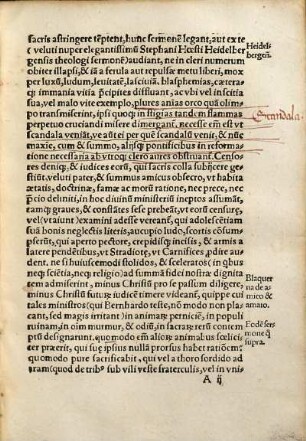 facris astringere tẽptent, hunc sermonẽ legant, aut ex te
ĉ veluti nuper elegantissimũ Stephani Hœsti Heidelber
gensis theologi sermonẽ)audiant, ne in cleri numerum
obiter illapsi, & iã a ferula aut repulsæ metu liberi, mox
per luxũ, ludum, leuitatẽ, lasciuiã, blasphemias, & cætera
quæ immania vitia præcipites diffluant, ac vbi vel inscitia,
vel malo vite exemplo, plures anias orco quã olimpo
transmiserint, ipsi quoqʒ in stigias tandem flammas
perpetuo cruciandi misere dimergant, necesse em est vt
scandala veniãt, ve aũt ei per quẽ scandalũ venit, & nũc
maxie, cum & summo, alijsqʒ pontificibus in reformatione
necessaria ab vtroqʒ clero aures obstruant. Censores
deniqʒ, & iudices eorũ, qui sacris colla subijcere
gestiũt, velut patres, & summos amicos obsecro, vt habita
ætatis, doctrinæ, famæ ac morũ ratione, nec prece, nec
precio deliniti, in hoc diuinũ ministeriũ ineptos assumãt,
amputẽt, cogitẽt
ctangs & graues, & cõstãtes sese prebeãt, vt eorũ censurę,
vel (vt aiunt) examini adesse vereant, qui adolescentiam suã
bonis neglectis literis, aucupio ludo, scortis cõsumpserũt,
qui aperto pectore, crepidisqʒ incisis, & armis a
latere pendẽtibus, vt Stradiotę, vt Carnifices, pdire audent,
ne si huiuscemodi stolidos, & sceleratos (in qbus
neqʒ sciẽtia, neqʒ religio) ad summã fidei nostræ dignitatem
admiserint, minus Christũ pro se passum diligere,
minus Christũ futurũ iudicẽ timere videant, quippe cũ
tales ministros (qui Bernhardo teste, nõ modo non placant,
sed magis irritant) in animarum pernicię, in populi
ruinam, in oim murmur, & odiũ, in sacrarũ rerũ contem
ptũ designarunt. quomodo em alioʒ animabus sœlicius
præerit, qui suę ipsius nulla prorsus habet ratiõem:
quomodo pure sacrificabit, qui vel a thoro sordido ad
aram(quod de tribʒ sub vili veste fraterculis, vel in vnius
A ij
Heidelbergeñ.
Scandala.
Blaquerna
de amico
& amato.
Eodẽ sermone q̃
supra.